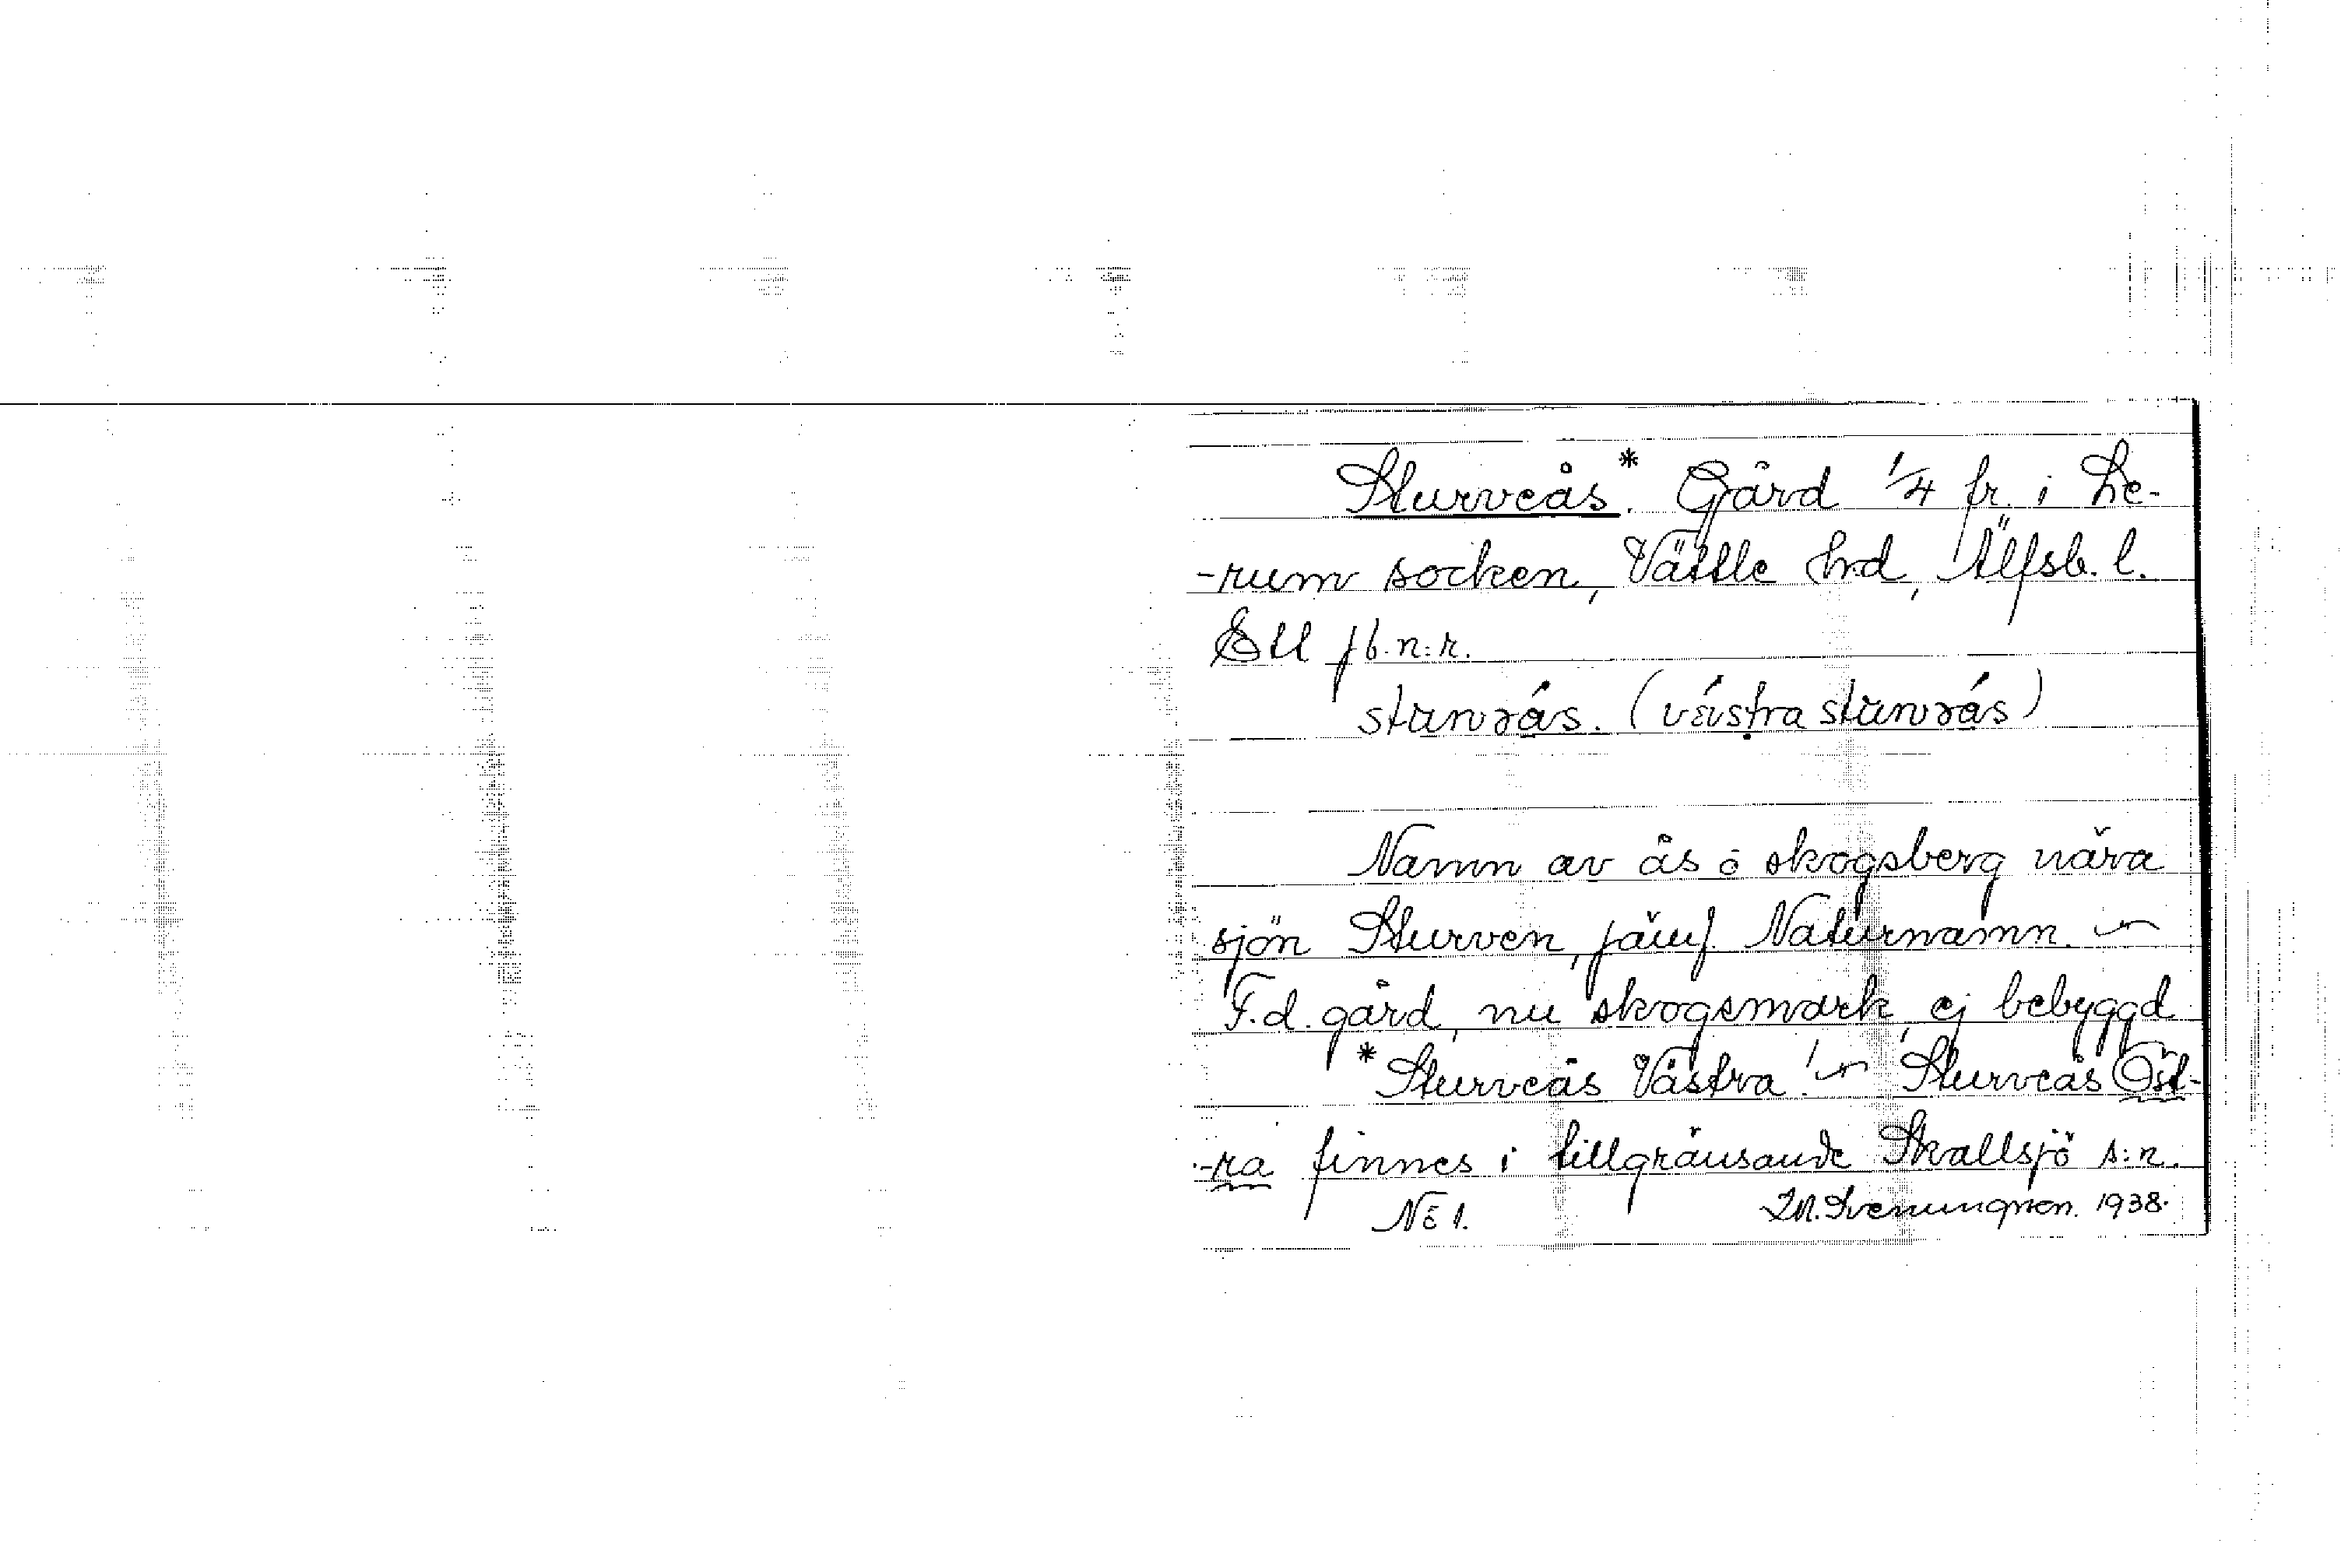 Sturveås.* Gård 1/4 fr. i Le-
-rum socken, Vättle hrd, Älfsb. l.
Ett jb.n:r.
Namn av ås o skogsberg nära
sjön Sturven, jämf. Naturnamn. ~
F.d. gård, nu skogsmark, ej bebyggd
*Sturveås Västra! ~ Sturveås Öst-
-ra finnes i tillgränsande Skallsjö s:n.
NE 1. 1938.